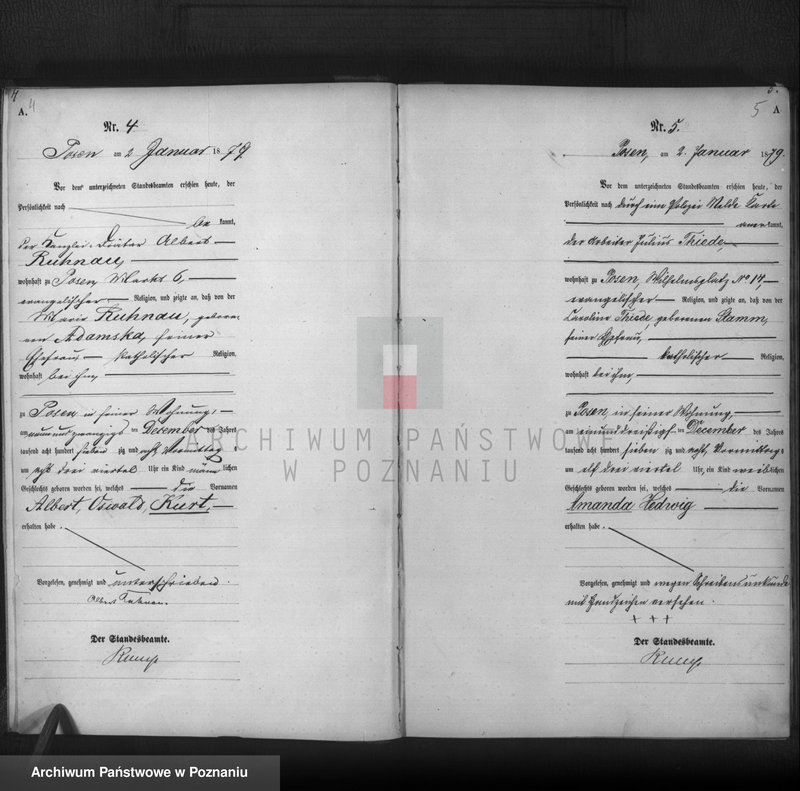 4
A. 4
Nr. 4
Posen am 2 Januar 1879
Vor dem unterzeichneten Standesbeamten erschien heute, der
Persönlichkeit nach
be kannt,
der Kanzlei-Diätar Albert
Kuhnau,
wohnhaft zu Posen Markt 6,
evangelischer Religion, und zeigte an, daß von der
Marie Kuhnau, gebore-
nen Adamska, seiner
Ehefrau katholischer Religion,
wohnhaft bei ihm,
zu Posen in seiner Wohnung,
am neunundzwanzigs ten December des Jahres
tausend acht hundert sieben zig und acht Vormittag s
um acht drei viertel Uhr ein Kind männ lichen
Geschlechts geboren worden sei, welches die Vornamen
Albert, Oswald, Kurt,
erhalten habe.
Vorgelesen, genehmigt und unterschrieben.
Albert Kuhnau.
Der Standesbeamte.
5.
5 A
Nr. 5.
Posen, am 2. Januar 1879.
Vor dem unterzeichneten Standesbeamten erschien heute, der
Persönlichkeit nach durch eine Polizei Melde Karte
aner kannt,
der Arbeiter Julius Thiede,
wohnhaft zu Posen, Wilhelmsplatz No 14,
evangelischer Religion, und zeigte an, daß von der
Caroline Thiede, geborenen Stamm,
seiner Ehefrau,
katholischer Religion,
wohnhaft bei ihm,
zu Posen, in seiner Wohnung,
am einunddreißigs ten December des Jahres
tausend acht hundert sieben zig und acht, Vormittags
um elf drei viertel Uhr ein Kind weib lichen
Geschlechts geboren worden sei, welches die Vornamen
Amanda Hedwig
erhalten habe.
Vorgelesen, genehmigt und wegen Schreibensunkunde
mit Handzeichen versehen.
+++
Der Standesbeamte.
ARCHIWUM PAŃSTWOWE
W POZNANIU
Archiwum Państwowe w Poznaniu